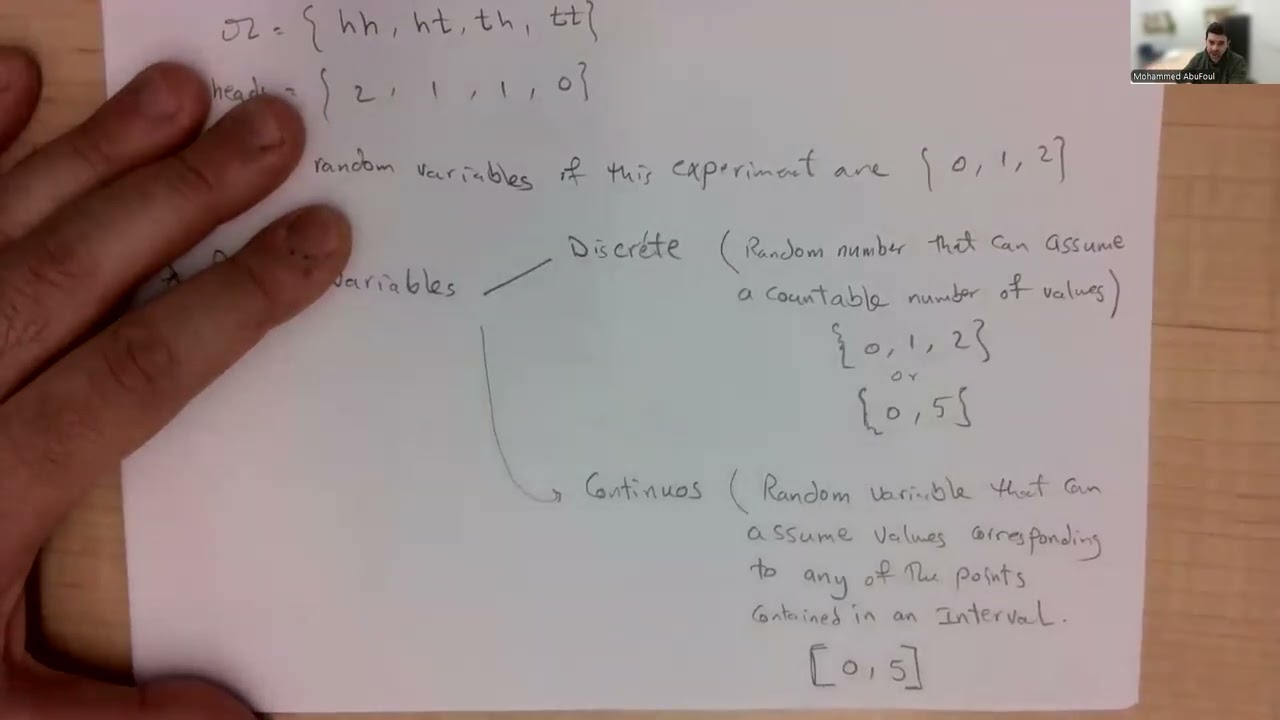 Ω = { hh, ht, th, tt}
Mohammed AbuFoul
heads = { 2, 1, 1, 0}
random variables of this experiment are { 0, 1, 2}
variables
Discrete (Random number that can assume
a countable number of values)
{0, 1, 2}
or
{0, 5}
Continuos (Random variable that can
assume values corresponding
to any of the points
contained in an Interval.
[0, 5]